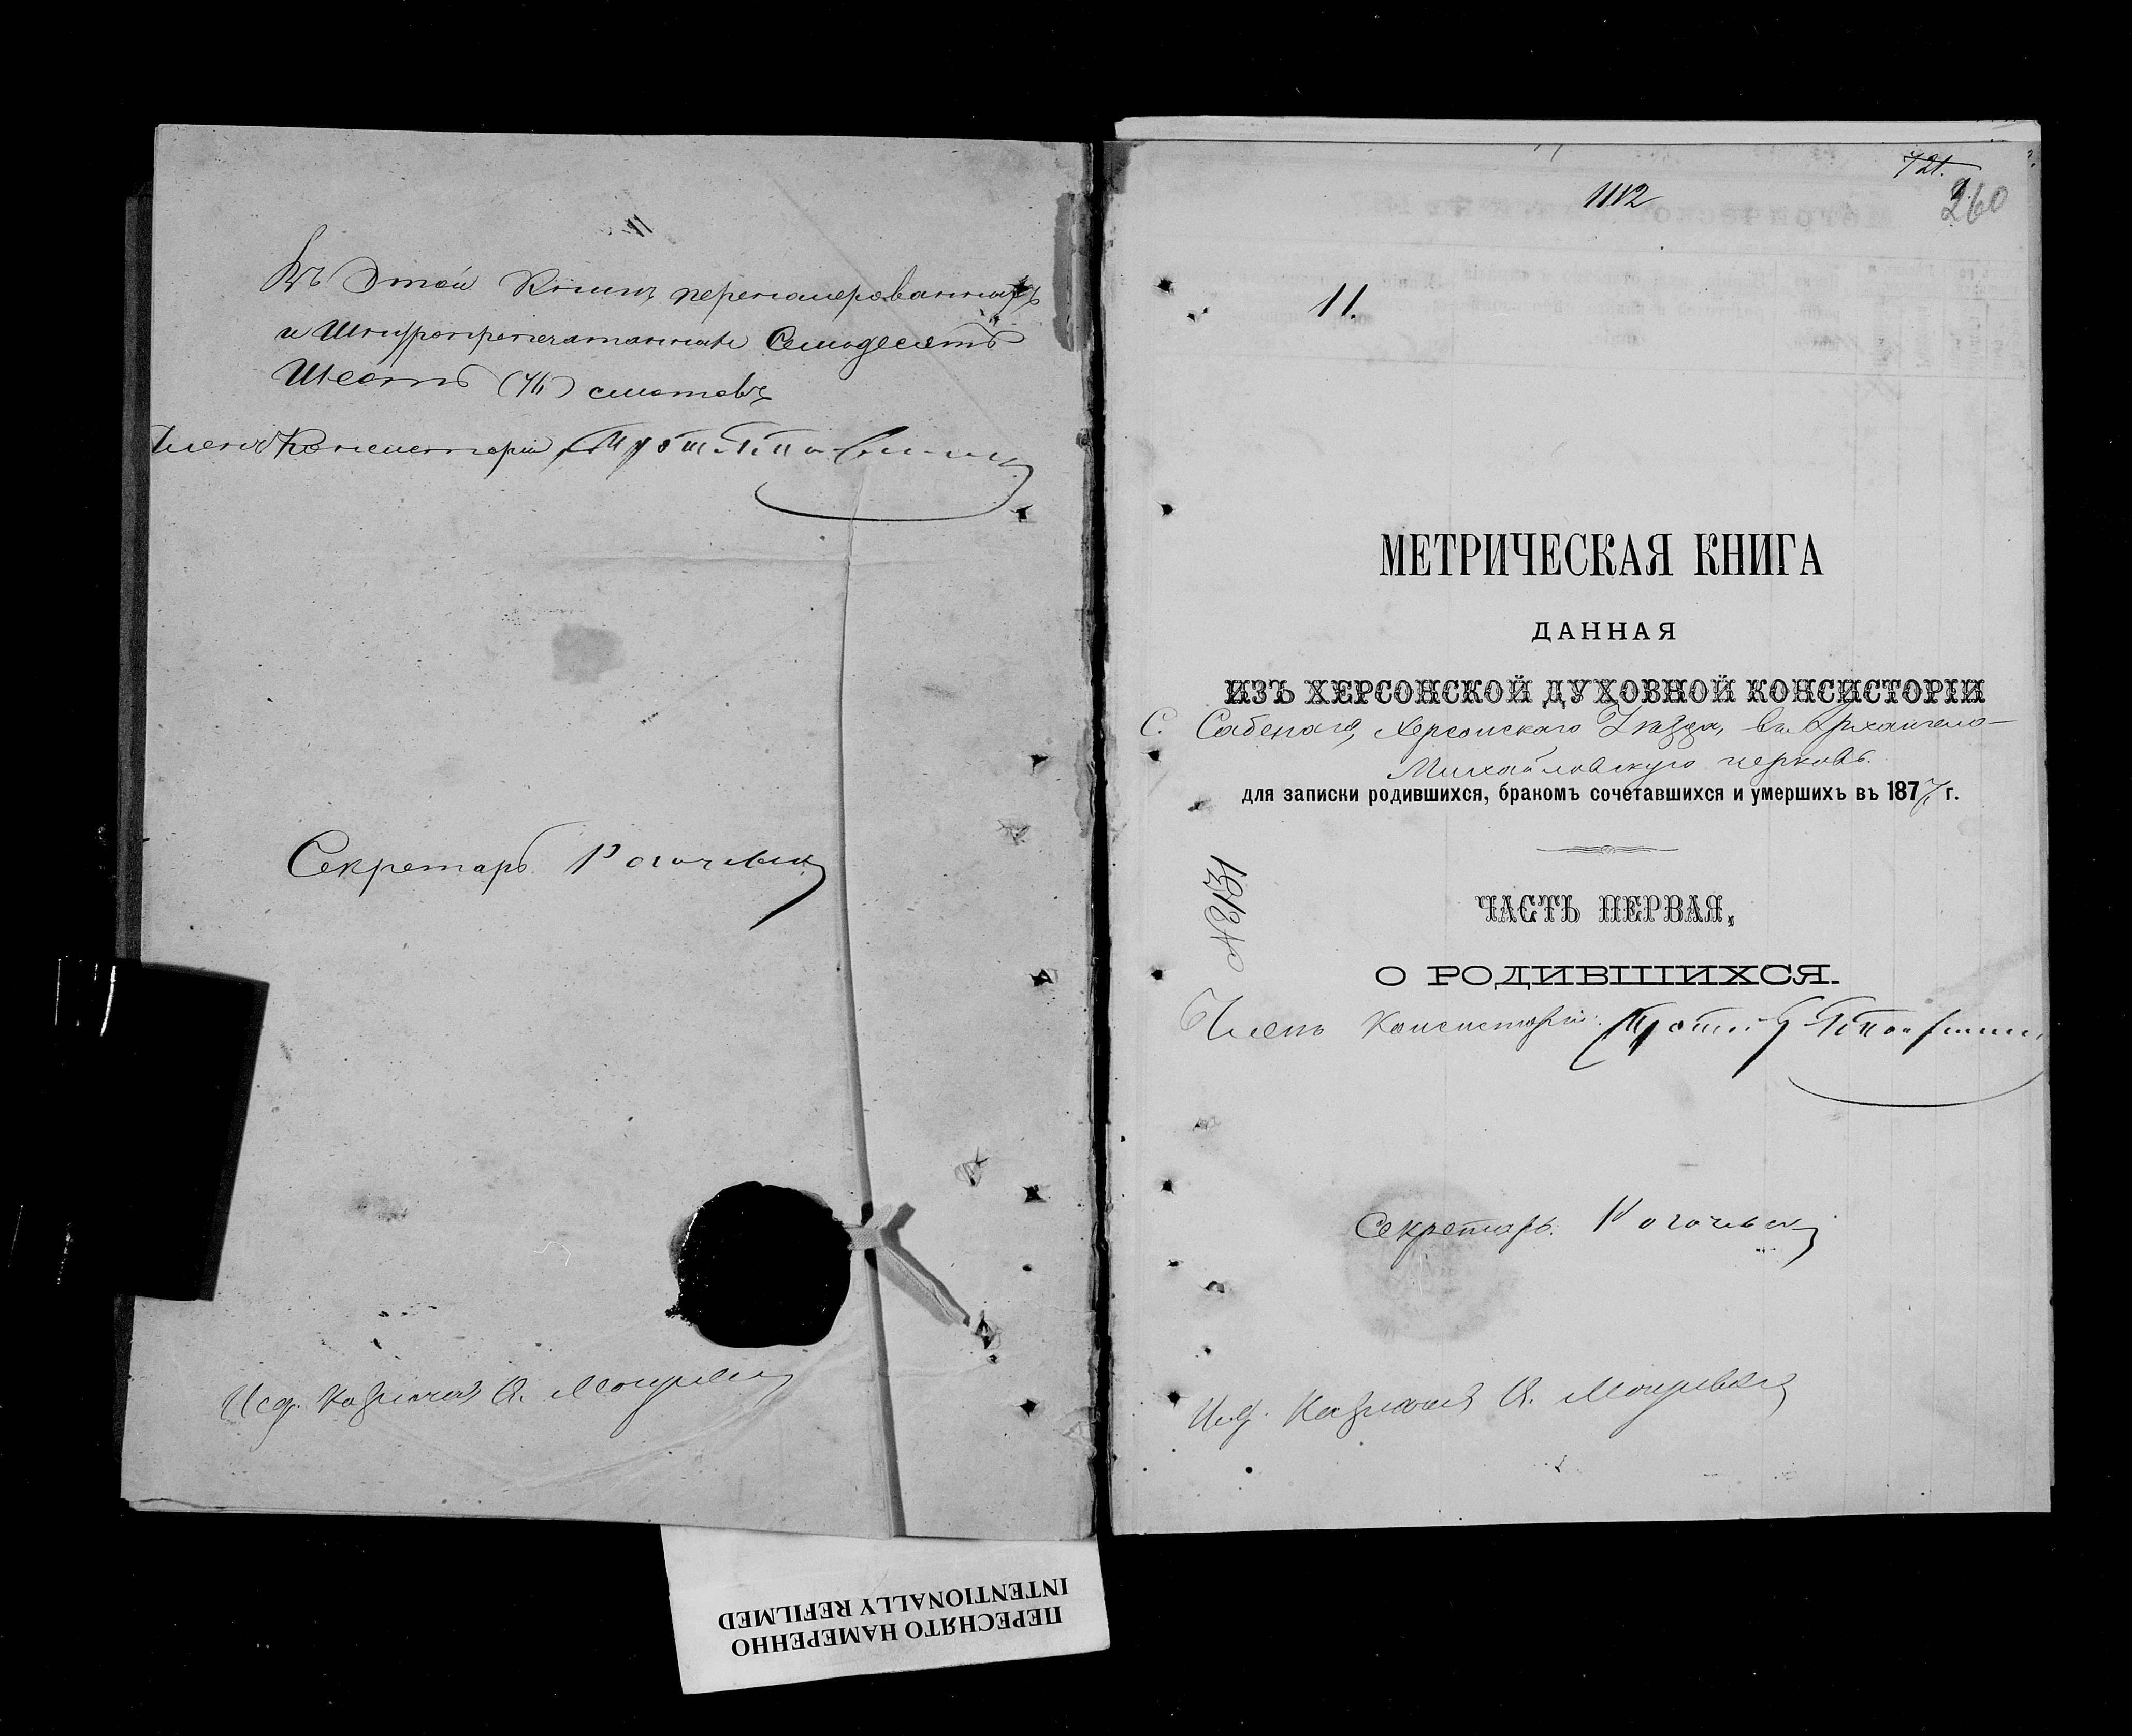 Въ Этой Книгѣ перенамерованныхъ
и Шнуропрепечатанныхъ Семьдесятъ
Шесть (76) листовъ
Членъ Консисторіи Прот.
Секретарь
Исд. Казначея А.
721.
1112
260
11.
МЕТРИЧЕСКАЯ КНИГА
ДАННАЯ
ИЗЪ ХЕРСОНСКОЙ ДУХОВНОЙ КОНСИСТОРІИ
С. Херсонскаго Уѣзда, въ Архангело-
Михайловскую церковь.
для записки родившихся, бракомъ сочетавшихся и умершихъ въ 1877 г.
№ 131
ЧАСТЬ ПЕРВАЯ,
О РОДИВШИХСЯ.
Членъ Консисторіи: Прот.
Секретарь:
Исд. Казначея А.
ПЕРЕСНЯТО НАМЕРЕННО
INTENTIONALLY REFILMED